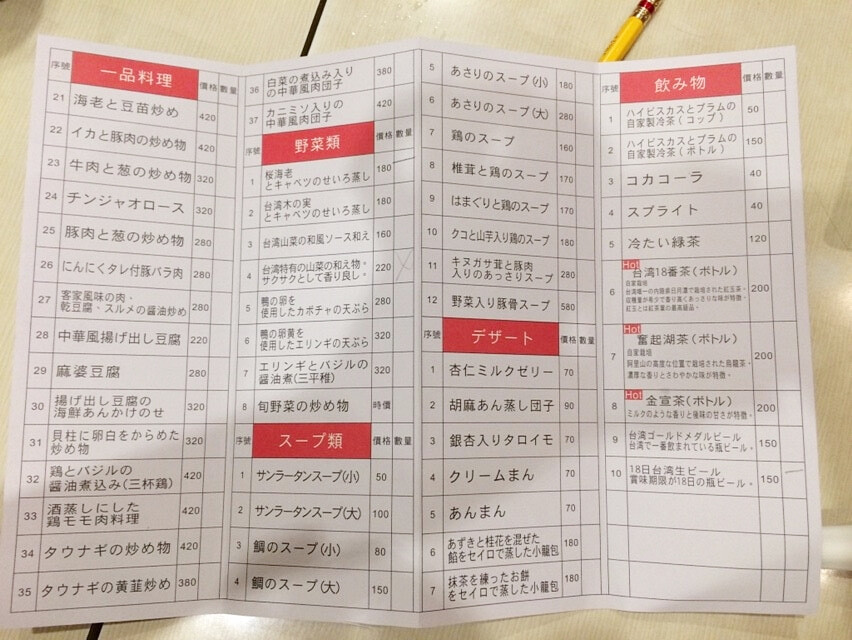 序號 一品料理 價格 數量
21 海老と豆苗炒め 420
22 イカと豚肉の炒め物 420
23 牛肉と葱の炒め物 320
24 チンジャオロース 320
25 豚肉と葱の炒め物 280
26 にんにくタレ付豚バラ肉 280
27 客家風味の肉・
乾豆腐・スルメの醤油炒め 280
28 中華風揚げ出し豆腐 220
29 麻婆豆腐 280
30 揚げ出し豆腐の
海鮮あんかけのせ 320
31 貝柱に卵白をからめた
炒め物 320
32 鶏とバジルの
醤油煮込み(三杯鶏) 420
33 酒蒸しにした
鶏モモ肉料理 420
34 タウナギの炒め物 420
35 タウナギの黄韮炒め 380
36 白菜の煮込み入り
の中華風肉団子 380
37 カニミソ入りの
中華風肉団子 420
序號 野菜類 價格 數量
1 桜海老
とキャベツのせいろ蒸し 180
2 台湾木の実
とキャベツのせいろ蒸し 180
3 台湾山菜の和風ソース和え 160
4 台湾特有の山菜の和え物。
サクサクとして香り良し。 220
5 鴨の卵を
使用したカボチャの天ぷら 280
6 鴨の卵黄を
使用したエリンギの天ぷら 320
7 エリンギとバジルの
醤油煮(三平稚) 320
8 旬野菜の炒め物 時價
序號 スープ類 價格 數量
1 サンラータンスープ(小) 50
2 サンラータンスープ(大) 100
3 鯛のスープ(小) 80
4 鯛のスープ(大) 150
5 あさりのスープ(小) 180
6 あさりのスープ(大) 280
7 鶏のスープ 160
8 椎茸と鶏のスープ 170
9 はまぐりと鶏のスープ 170
10 クコと山芋入り鶏のスープ 180
11 キヌガサ茸と豚肉
入りのあっさりスープ 280
12 野菜入り豚骨スープ 580
序號 デザート 價格 數量
1 杏仁ミルクゼリー 70
2 胡麻あん蒸し団子 90
3 銀杏入りタロイモ 70
4 クリームまん 70
5 あんまん 70
6 あずきと桂花を混ぜた
餡をセイロで蒸した小籠包 180
7 抹茶を練ったお餅
をセイロで蒸した小籠包 180
序號 飲み物 價格 數量
1 ハイビスカスとプラムの
自家製冷茶(コップ) 50
2 ハイビスカスとプラムの
自家製冷茶(ボトル) 150
3 コカコーラ 40
4 スプライト 40
5 冷たい緑茶 120
Hot
6 台湾18番茶(ボトル) 200
自家栽培
台湾唯一の内陸県日月潭で栽培された紅玉茶。
収穫量が希少で香り高くあっさりな味が特徴。
紅玉とは紅茶葉の最高級品。
Hot
7 奮起湖茶(ボトル) 200
自家栽培
阿里山の高度な位置で栽培された烏龍茶。
濃厚な香りとさわやかな味が特徴。
Hot
8 金宣茶(ボトル) 200
ミルクのような香りと後味の甘さが特徴。
9 台湾ゴールドメダルビール
台湾で一番飲まれている瓶ビール。 150
10 18日台湾生ビール
賞味期限が18日の瓶ビール。 150